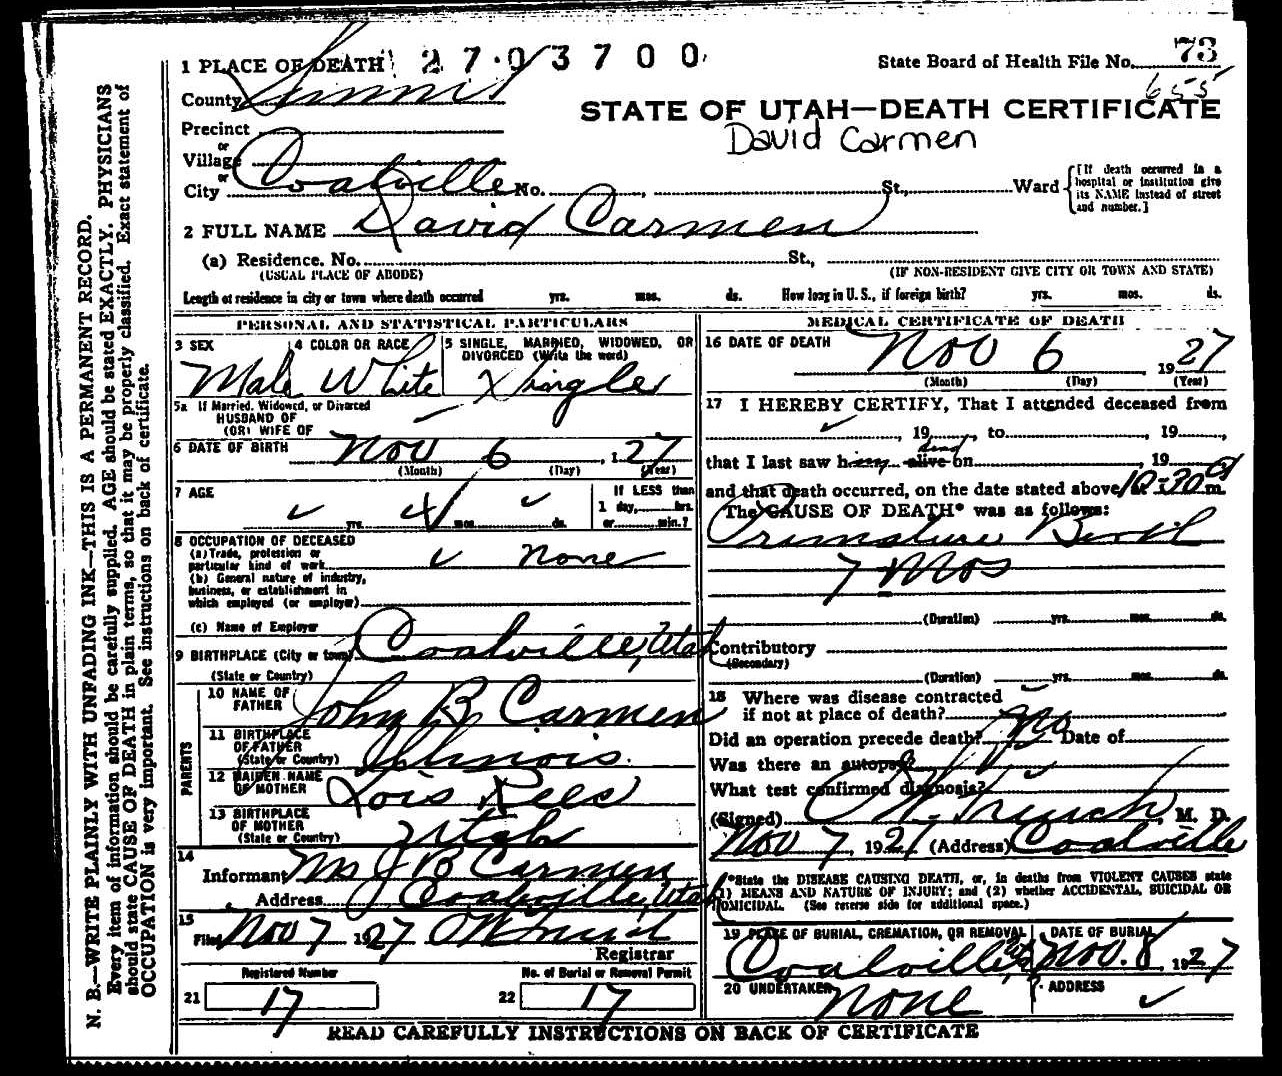 1 PLACE OF DEATH 2703700 State Board of Health File No. 73
655
County Summit
STATE OF UTAH—DEATH CERTIFICATE
Precinct
David Carmen
or
Village
or
City Coalville No. , St., Ward [If death occurred in a hospital or institution give its NAME instead of street and number.]
2 FULL NAME David Carmen
(a) Residence. No. St.,
(USUAL PLACE OF ABODE) (IF NON-RESIDENT GIVE CITY OR TOWN AND STATE)
Length of residence in city or town where death occurred yrs. mos. ds. How long in U. S., if foreign birth? yrs. mos. ds.
PERSONAL AND STATISTICAL PARTICULARS
3 SEX 4 COLOR OR RACE 5 SINGLE, MARRIED, WIDOWED, OR
DIVORCED (Write the word)
Male White Single
5a If Married, Widowed, or Divorced
HUSBAND OF
(OR) WIFE OF
6 DATE OF BIRTH Nov 6, 1 27
(Month) (Day) (Year)
7 AGE
If LESS than
1 day, hrs.
yrs. mos. ds. or min.?
8 OCCUPATION OF DECEASED
(a) Trade, profession or
particular kind of work none
(b) General nature of industry,
business, or establishment in
which employed (or employer)
(c) Name of Employer
9 BIRTHPLACE (City or town) Coalville, Utah
(State or Country)
PARENTS
10 NAME OF
FATHER John B Carmen
11 BIRTHPLACE
OF FATHER
(State or Country) Illinois.
12 MAIDEN NAME
OF MOTHER Lois Rees
13 BIRTHPLACE
OF MOTHER
(State or Country) Utah
14
Informant Mrs J B Carmen
Address Coalville, Utah
15
Filed Nov 7 1927
Registrar
Registered Number No. of Burial or Removal Permit
21 17 22 17
MEDICAL CERTIFICATE OF DEATH
16 DATE OF DEATH Nov 6 1927
(Month) (Day) (Year)
17 I HEREBY CERTIFY, That I attended deceased from
, 19 , to , 19 ,
dead
that I last saw him alive on , 19
and that death occurred, on the date stated above, at 10:30 a m.
The CAUSE OF DEATH* was as follows:
Premature Birth
7 Mos
(Duration) yrs. mos. ds.
Contributory
(Secondary)
(Duration) yrs. mos. ds.
18 Where was disease contracted
if not at place of death?
Did an operation precede death? no Date of
Was there an autopsy?
What test confirmed diagnosis?
(Signed) , M. D.
Nov 7, 1927 (Address) Coalville
*State the DISEASE CAUSING DEATH, or, in deaths from VIOLENT CAUSES state
(1) MEANS AND NATURE OF INJURY; and (2) whether ACCIDENTAL, SUICIDAL OR
HOMICIDAL. (See reverse side for additional space.)
19 PLACE OF BURIAL, CREMATION, OR REMOVAL DATE OF BURIAL
Coalville, Nov. 8, 1927
20 UNDERTAKER ADDRESS
none
READ CAREFULLY INSTRUCTIONS ON BACK OF CERTIFICATE
N. B.—WRITE PLAINLY WITH UNFADING INK—THIS IS A PERMANENT RECORD.
Every item of information should be carefully supplied. AGE should be stated EXACTLY. PHYSICIANS
should state CAUSE OF DEATH in plain terms, so that it may be properly classified. Exact statement of
OCCUPATION is very important. See instructions on back of certificate.